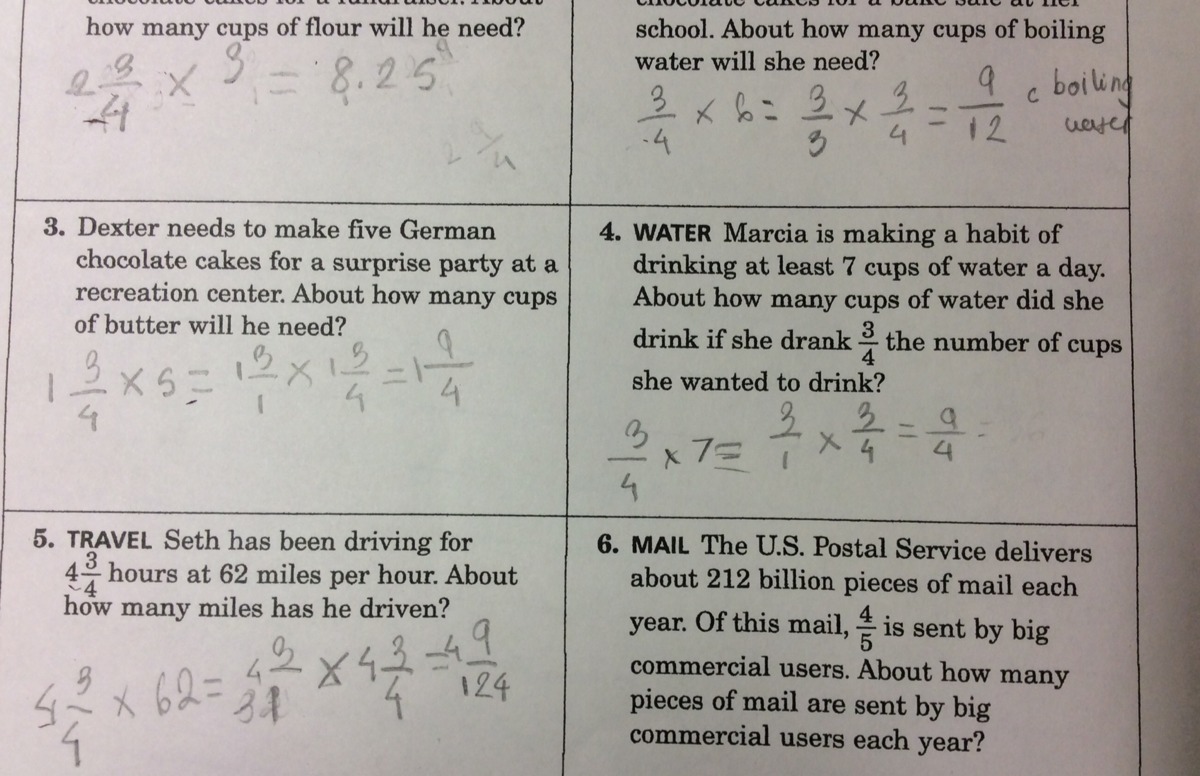 how many cups of flour will he need?
2 3/4 × 3 = 8.25
school. About how many cups of boiling
water will she need?
3/4 × 6 = 3/3 × 3/4 = 9/12 c boiling
water
3. Dexter needs to make five German
chocolate cakes for a surprise party at a
recreation center. About how many cups
of butter will he need?
1 3/4 × 5 = 1 3/1 × 1 3/4 = 1 9/4
4. WATER Marcia is making a habit of
drinking at least 7 cups of water a day.
About how many cups of water did she
drink if she drank 3/4 the number of cups
she wanted to drink?
3/4 × 7 = 3/1 × 3/4 = 9/4 =
5. TRAVEL Seth has been driving for
4 3/4 hours at 62 miles per hour. About
how many miles has he driven?
4 3/4 × 62 = 4 3/31 × 4 3/4 = 4 9/124
6. MAIL The U.S. Postal Service delivers
about 212 billion pieces of mail each
year. Of this mail, 4/5 is sent by big
commercial users. About how many
pieces of mail are sent by big
commercial users each year?